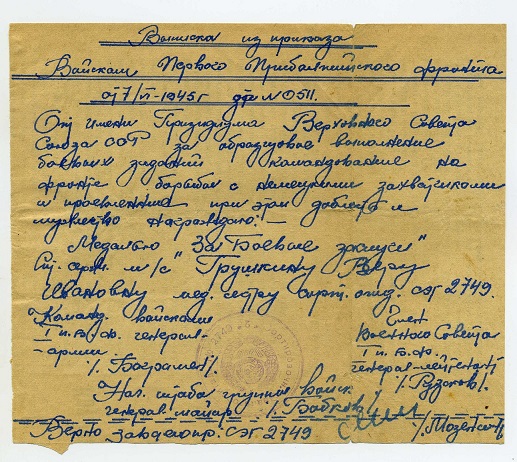 Выписка из приказа
Войскам Первого Прибалтийского фронта
от 7/VI-1945г № 0511.
От имени Президиума Верховного Совета
Союза ССР за образцовое выполнение
боевых заданий командования на
фронте борьбы с немецкими захватчиками
и проявленные при этом доблесть и
мужество награждаю: —
Медалью "За Боевые заслуги"
Ст. серж. м/с Грушкину Веру
Ивановну мед. сестру отд. СЭГ 2749.
Команд. войсками Член
1 П.б.ф. генерал- Военного Совета
-армии 1 п.б.ф.
генерал-лейтенант
/. Баграмян/. /. Рудаков/.
Нач. штаба группы Войск
генерал-майор /. Бабков/.
Верно СЭГ 2749